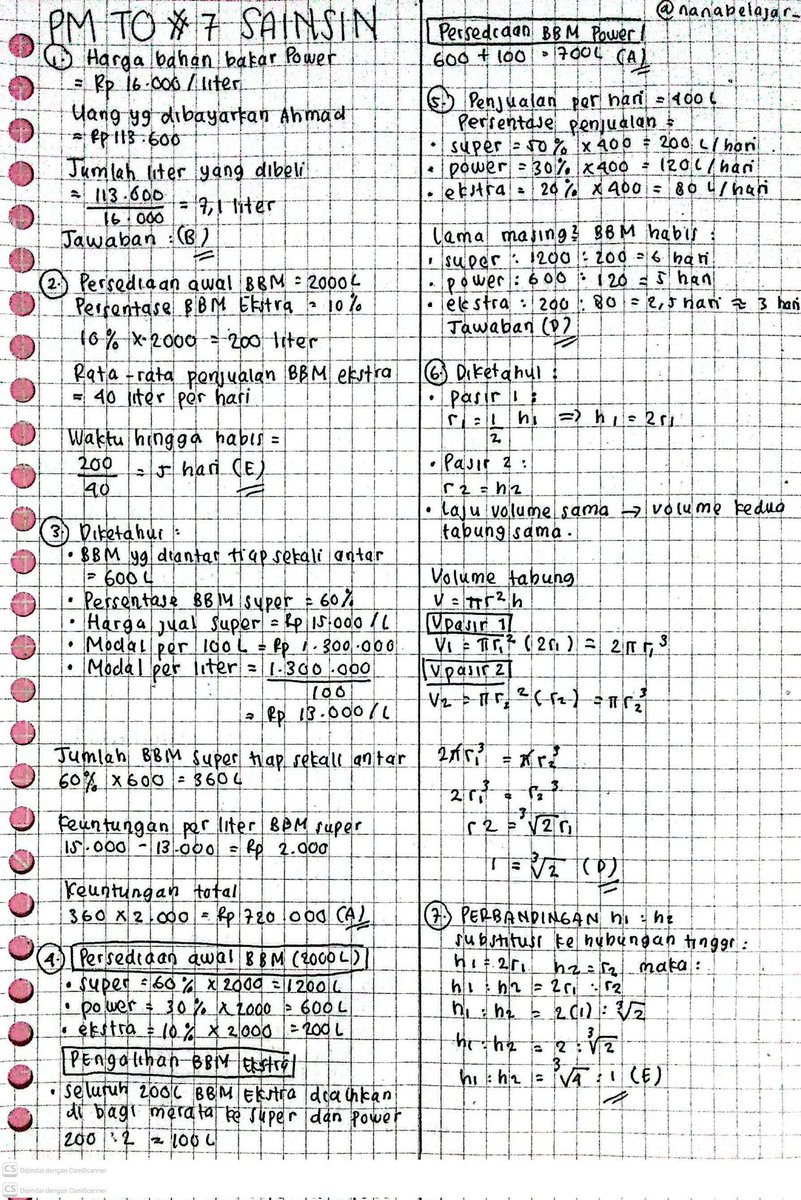 PM TO #7 SAINSIN
1. Harga bahan bakar Power
= Rp 16.000 / liter
Uang yg dibayarkan Ahmad
= Rp 113.600
Jumlah liter yang dibeli
= 113.600 / 16.000 = 7,1 liter
Jawaban : (B)
2. Persediaan awal BBM = 2000L
Persentase BBM Ekstra = 10%
10% x 2000 = 200 liter
Rata-rata penjualan BBM ekstra
= 40 liter per hari
Waktu hingga habis =
200 / 40 = 5 hari (E)
3. Diketahui :
• BBM yg diantar tiap sekali antar
= 600L
• Persentase BBM super = 60%
• Harga jual Super = Rp 15.000/L
• Modal per 100L = Rp 1.300.000
• Modal per liter = 1.300.000 / 100
= Rp 13.000/L
Jumlah BBM Super tiap sekali antar
60% x 600 = 360L
Keuntungan per liter BBM super
15.000 - 13.000 = Rp 2.000
Keuntungan total
360 x 2.000 = Rp 720.000 (A)
4. Persediaan awal BBM (2000L)
• super = 60% x 2000 = 1200L
• power = 30% x 2000 = 600L
• ekstra = 10% x 2000 = 200L
Pengalihan BBM Ekstra
• seluruh 200L BBM Ekstra dialihkan
di bagi merata ke super dan power
200 : 2 = 100L
@nanabelajar_
Persediaan BBM Power
600 + 100 = 700L (A)
5. Penjualan per hari = 400L
Persentase penjualan =
• super = 50% x 400 = 200 L/hari
• power = 30% x 400 = 120L/hari
• ekstra = 20% x 400 = 80 L/hari
Lama masing² BBM habis :
• super : 1200 : 200 = 6 hari
• power : 600 : 120 = 5 hari
• ekstra : 200 : 80 = 2,5 hari ≈ 3 hari
Jawaban (D)
6. Diketahui :
• Pasir 1 :
r₁ = 1/2 h₁ => h₁ = 2r₁
• Pasir 2 :
r2 = h2
• Laju volume sama → volume kedua
tabung sama.
Volume tabung
V = πr²h
V pasir 1
V₁ = πr₁² (2r₁) = 2πr₁³
V pasir 2
V₂ = πr₂² (r₂) = πr₂³
2πr₁³ = πr₂³
2r₁³ = r₂³
r2 = ³√2 r₁
1 = ³√2 (D)
7. PERBANDINGAN h₁ : h₂
substitusi ke hubungan tinggi :
h₁ = 2r₁ h₂ = r₂ maka :
h₁ : h₂ = 2r₁ : r₂
h₁ : h₂ = 2(1) : ³√2
h₁ : h₂ = 2 : ³√2
h₁ : h₂ = ³√4 : 1 (E)
CS Dipindai dengan CamScanner
CS Dipindai dengan CamScanner